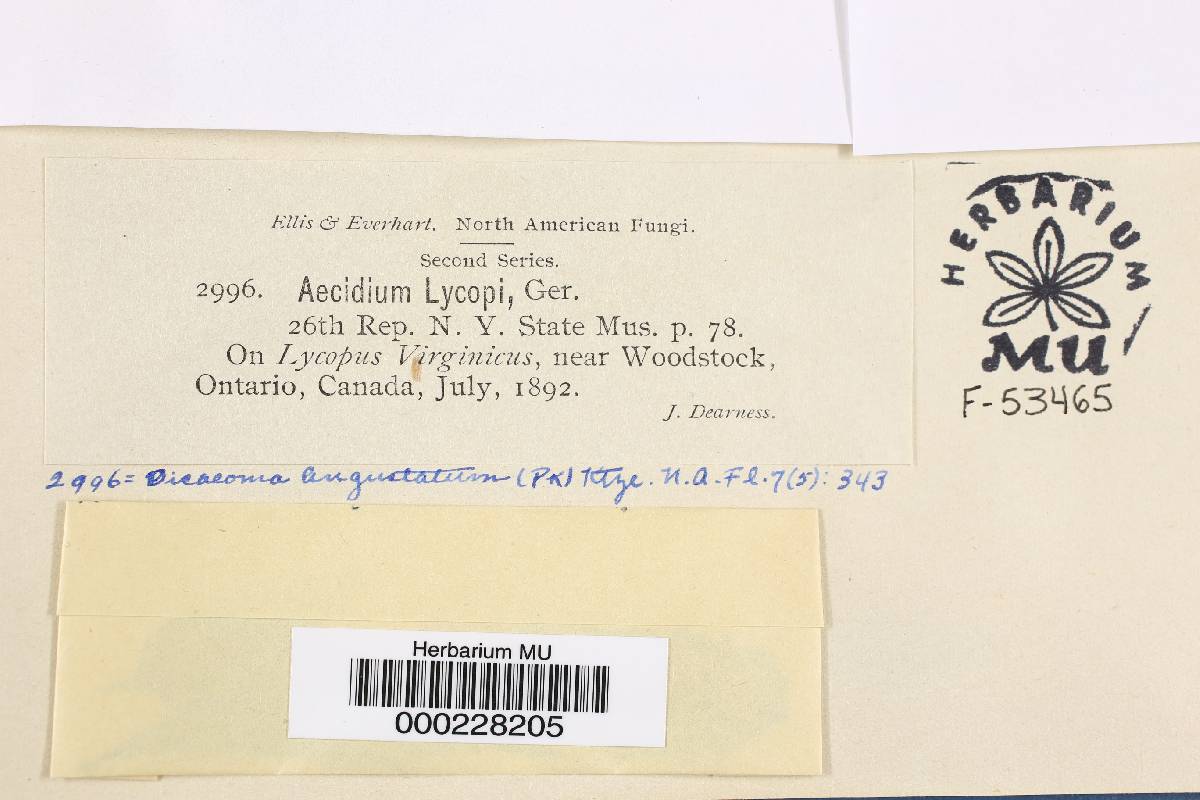 Ellis & Everhart. North American Fungi.
Second Series.
2996. Aecidium Lycopi, Ger.
26th Rep. N. Y. State Mus. p. 78.
On Lycopus Virginicus, near Woodstock,
Ontario, Canada, July, 1892.
J. Dearness.
HERBARIUM
MU
F-53465
2996 = Dicaeoma angustatum (Pk) Ktze. N.A.Fl. 7(5): 343
Herbarium MU
000228205